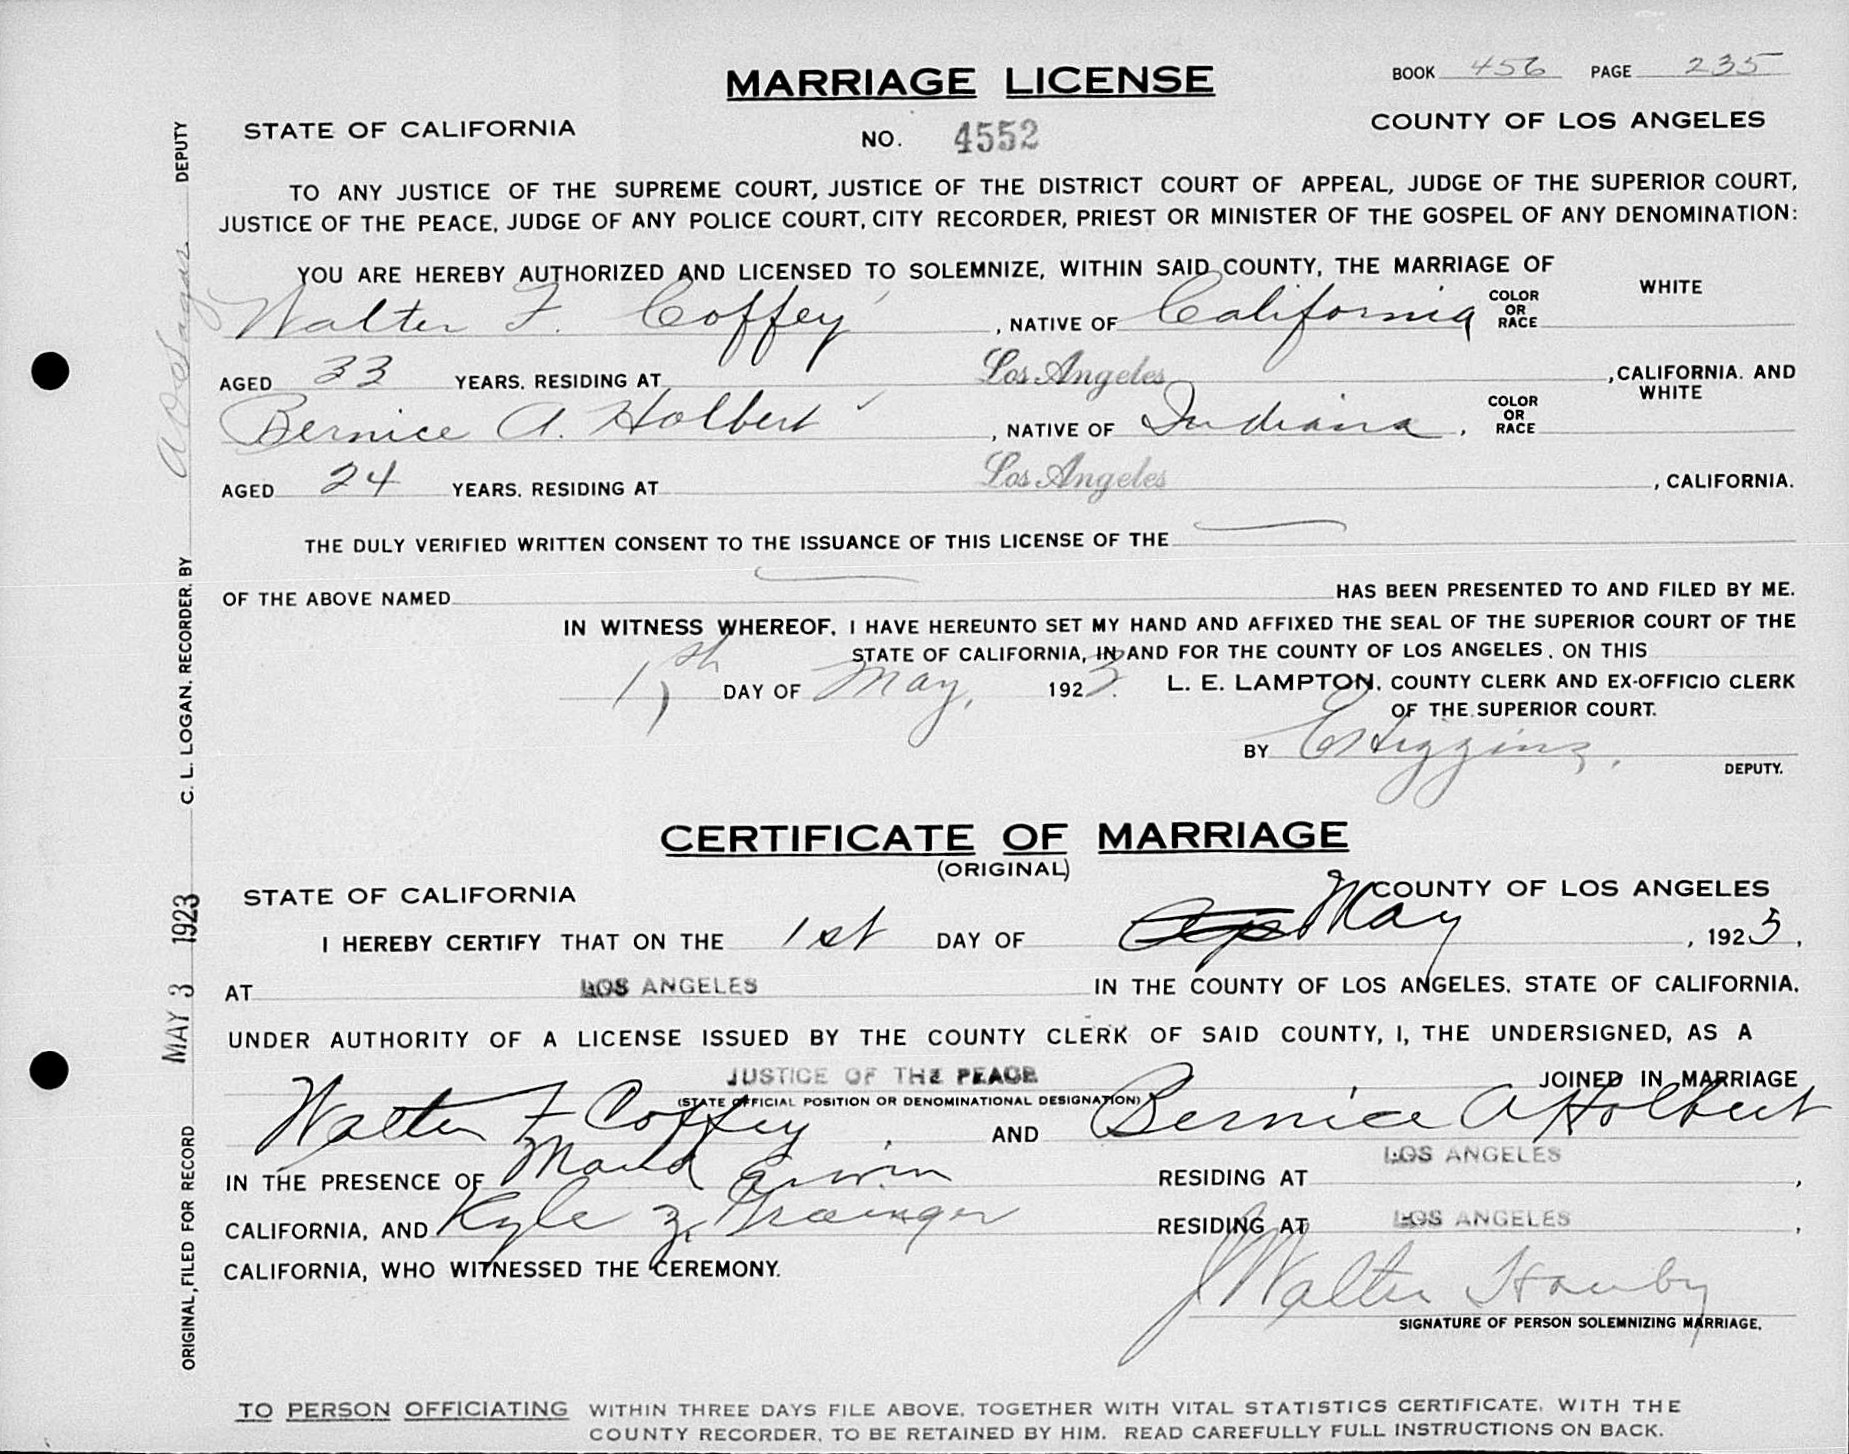 BOOK 456 PAGE 235
MARRIAGE LICENSE
STATE OF CALIFORNIA NO. 4552 COUNTY OF LOS ANGELES
TO ANY JUSTICE OF THE SUPREME COURT, JUSTICE OF THE DISTRICT COURT OF APPEAL, JUDGE OF THE SUPERIOR COURT,
JUSTICE OF THE PEACE, JUDGE OF ANY POLICE COURT, CITY RECORDER, PRIEST OR MINISTER OF THE GOSPEL OF ANY DENOMINATION:
YOU ARE HEREBY AUTHORIZED AND LICENSED TO SOLEMNIZE, WITHIN SAID COUNTY, THE MARRIAGE OF
Walter F. Coffey, NATIVE OF California COLOR OR RACE WHITE
AGED 33 YEARS, RESIDING AT Los Angeles, CALIFORNIA, AND
Bernice A. Holbert, NATIVE OF Indiana, COLOR OR RACE WHITE
AGED 24 YEARS, RESIDING AT Los Angeles, CALIFORNIA.
THE DULY VERIFIED WRITTEN CONSENT TO THE ISSUANCE OF THIS LICENSE OF THE
OF THE ABOVE NAMED HAS BEEN PRESENTED TO AND FILED BY ME.
IN WITNESS WHEREOF, I HAVE HEREUNTO SET MY HAND AND AFFIXED THE SEAL OF THE SUPERIOR COURT OF THE
STATE OF CALIFORNIA, IN AND FOR THE COUNTY OF LOS ANGELES, ON THIS
1st DAY OF May, 1923. L. E. LAMPTON, COUNTY CLERK AND EX-OFFICIO CLERK
OF THE SUPERIOR COURT.
BY E Higgins, DEPUTY.
CERTIFICATE OF MARRIAGE
(ORIGINAL)
STATE OF CALIFORNIA COUNTY OF LOS ANGELES
I HEREBY CERTIFY THAT ON THE 1st DAY OF May, 1923,
AT LOS ANGELES IN THE COUNTY OF LOS ANGELES, STATE OF CALIFORNIA,
UNDER AUTHORITY OF A LICENSE ISSUED BY THE COUNTY CLERK OF SAID COUNTY, I, THE UNDERSIGNED, AS A
JUSTICE OF THE PEACE JOINED IN MARRIAGE
(STATE OFFICIAL POSITION OR DENOMINATIONAL DESIGNATION)
Walter F Coffey, AND Bernice A Holbert
IN THE PRESENCE OF Maud Erwin RESIDING AT LOS ANGELES,
CALIFORNIA, AND Kyle Z. Grainger RESIDING AT LOS ANGELES,
CALIFORNIA, WHO WITNESSED THE CEREMONY.
J Walter Hanby
SIGNATURE OF PERSON SOLEMNIZING MARRIAGE.
TO PERSON OFFICIATING WITHIN THREE DAYS FILE ABOVE, TOGETHER WITH VITAL STATISTICS CERTIFICATE, WITH THE
COUNTY RECORDER, TO BE RETAINED BY HIM. READ CAREFULLY FULL INSTRUCTIONS ON BACK.
ORIGINAL, FILED FOR RECORD MAY 3 1923 C. L. LOGAN, RECORDER, BY DEPUTY